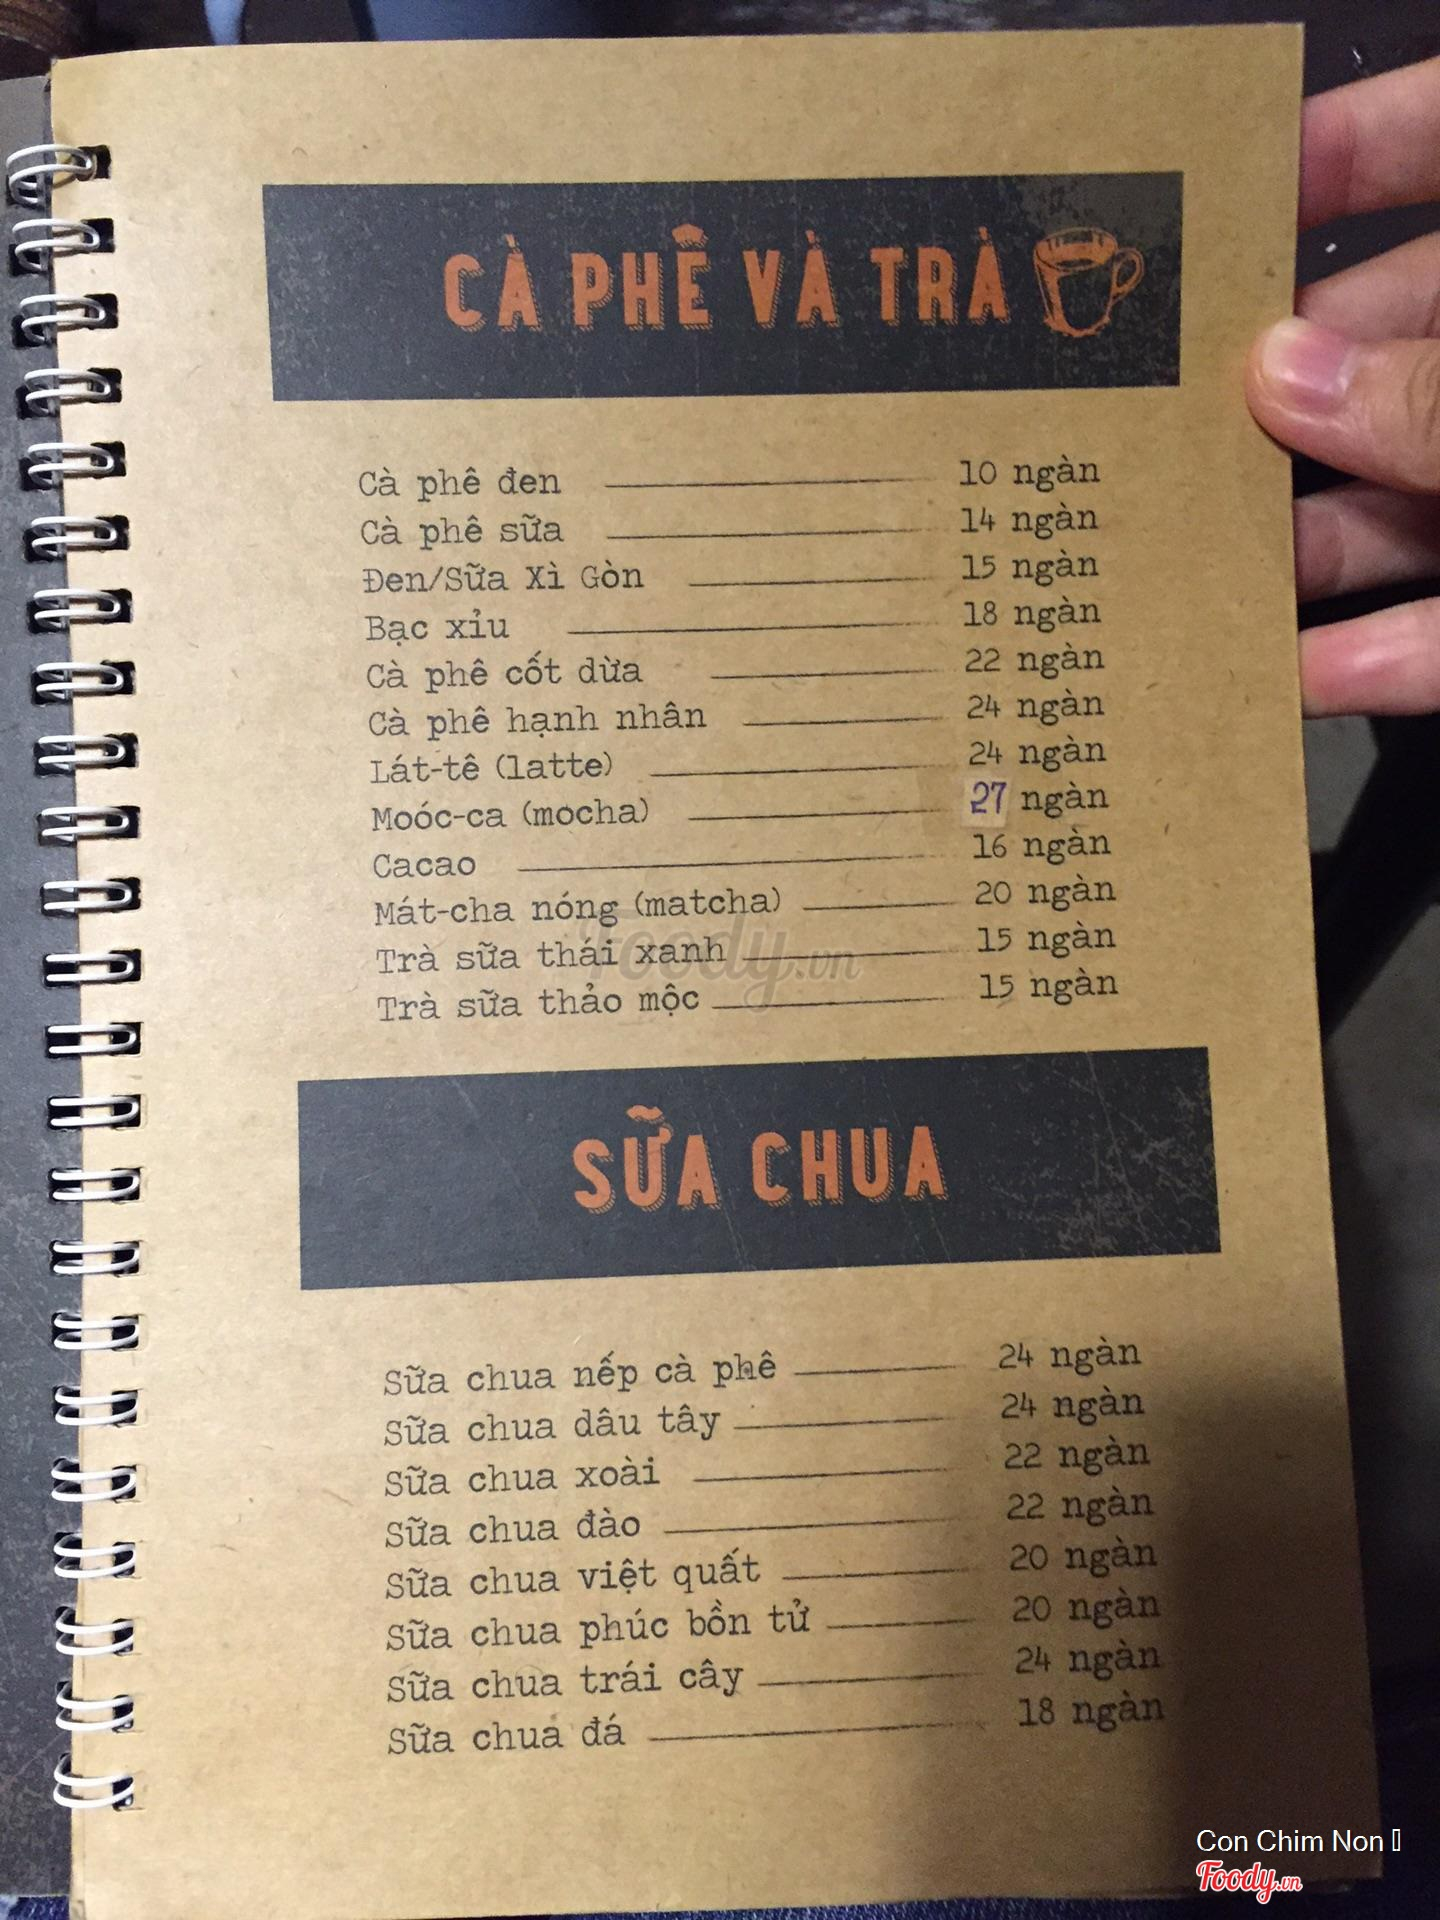 CÀ PHÊ VÀ TRÀ
Cà phê đen 10 ngàn
Cà phê sữa 14 ngàn
Đen/Sữa Xì Gòn 15 ngàn
Bạc xỉu 18 ngàn
Cà phê cốt dừa 22 ngàn
Cà phê hạnh nhân 24 ngàn
Lát-tê (latte) 24 ngàn
Moóc-ca (mocha) 27 ngàn
Cacao 16 ngàn
Mát-cha nóng (matcha) 20 ngàn
Trà sữa thái xanh 15 ngàn
Trà sữa thảo mộc 15 ngàn
Foody.vn
SỮA CHUA
Sữa chua nếp cà phê 24 ngàn
Sữa chua dâu tây 24 ngàn
Sữa chua xoài 22 ngàn
Sữa chua đào 22 ngàn
Sữa chua việt quất 20 ngàn
Sữa chua phúc bồn tử 20 ngàn
Sữa chua trái cây 24 ngàn
Sữa chua đá 18 ngàn
Con Chim Non
Foody.vn